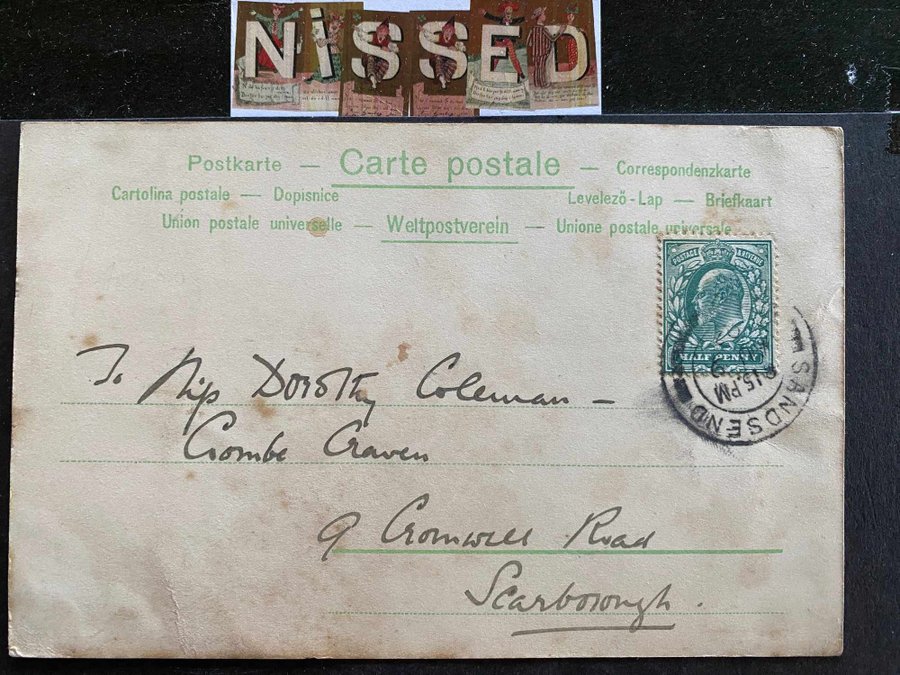 NiSSED
Postkarte — Carte postale — Correspondenzkarte
Cartolina postale — Dopisnice Levelező-Lap — Briefkaart
Union postale universelle — Weltpostverein — Unione postale universale
POSTAGE & REVENUE
HALFPENNY
SANDSEND
15 PM
To Miss Dorothy Coleman –
Combe Craven
9 Cromwell Road
Scarborough.